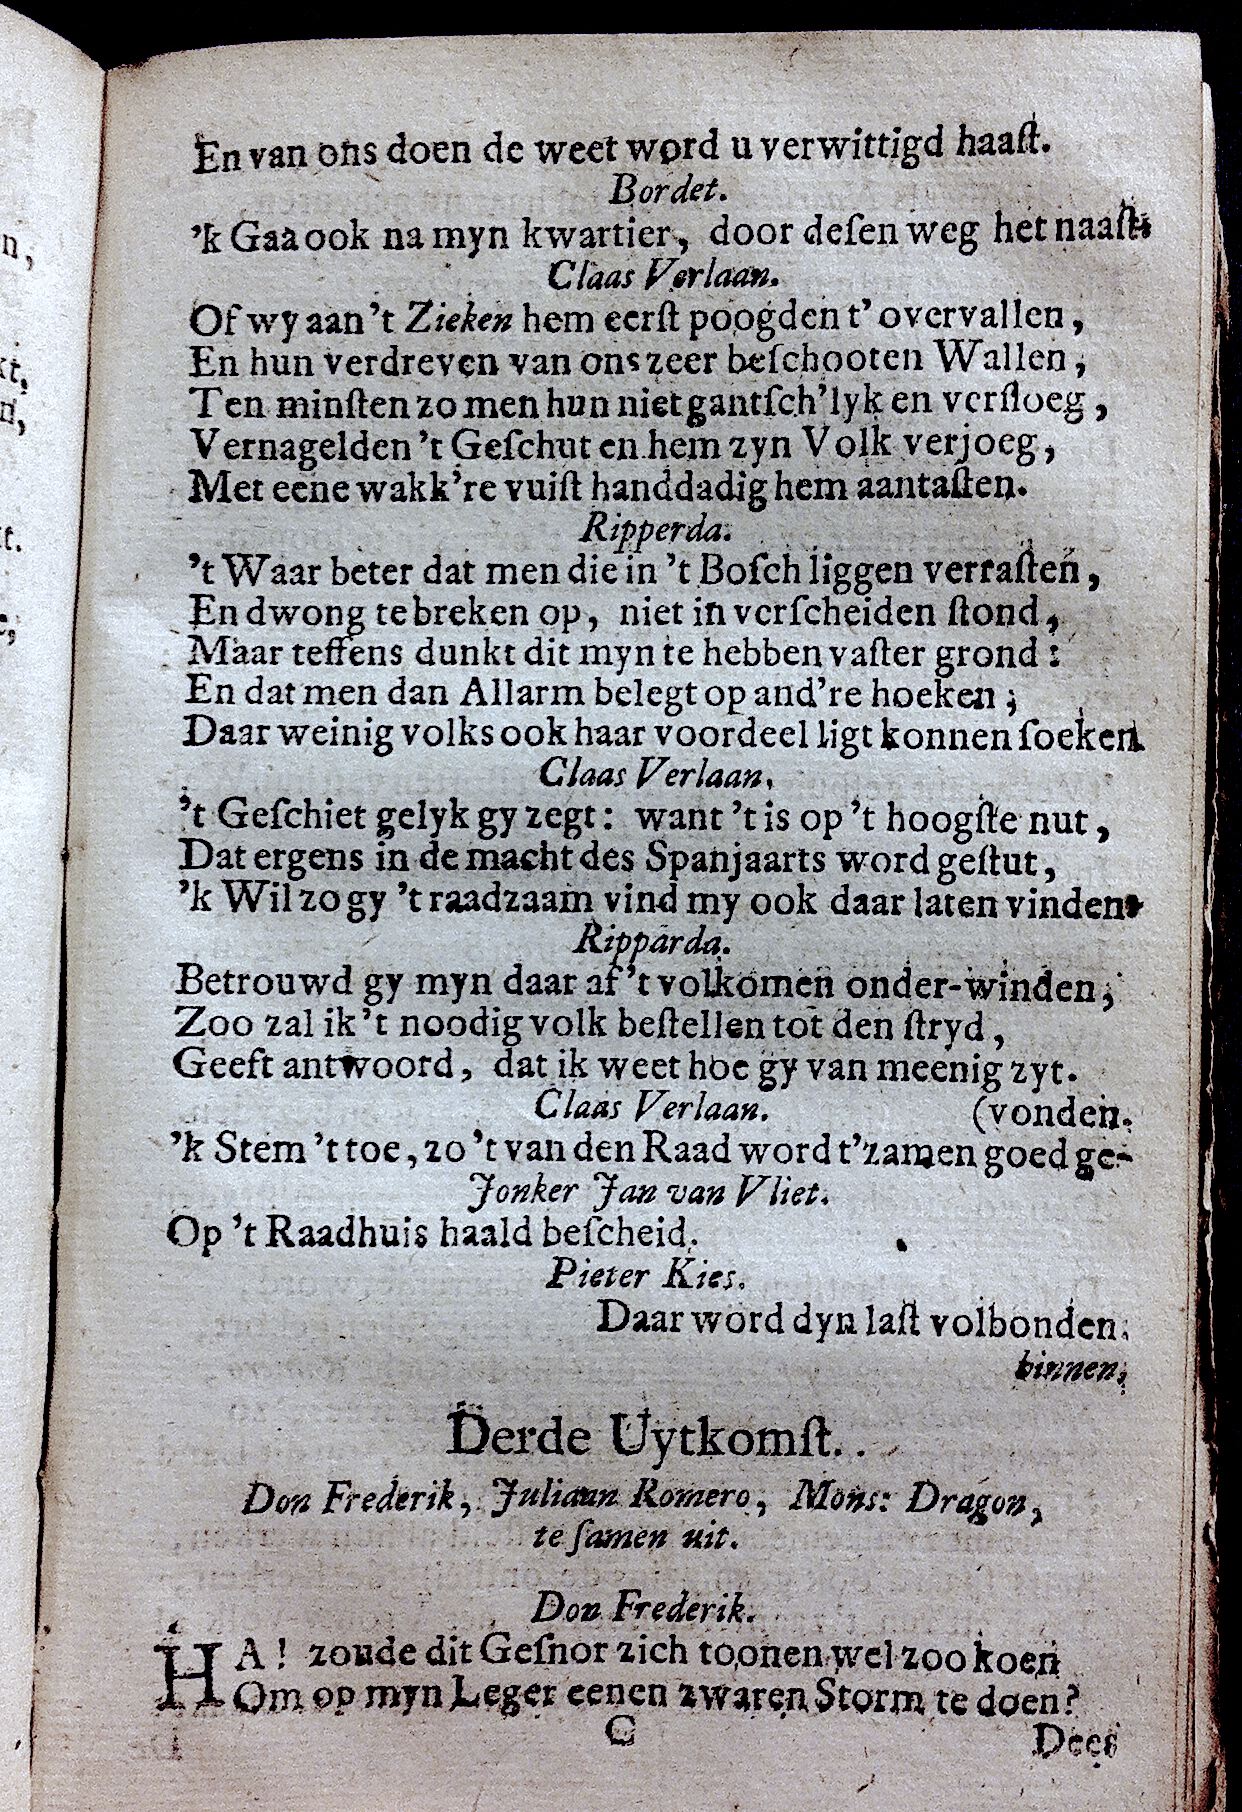 En van ons doen de weet word u verwittigd haaſt.
Bordet.
'k Gaa ook na myn kwartier, door deſen weg het naaſt.
Claas Verlaan.
Of wy aan 't Zieken hem eerſt poogden t' overvallen,
En hun verdreven van ons zeer beſchooten Wallen,
Ten minſten zo men hun niet gantſch'lyk en verſloeg,
Vernagelden 't Geſchut en hem zyn Volk verjoeg,
Met eene wakk're vuiſt handdadig hem aantaſten.
Ripperda.
't Waar beter dat men die in 't Boſch liggen verraſten,
En dwong te breken op, niet in verſcheiden ſtond,
Maar teffens dunkt dit myn te hebben vaſter grond:
En dat men dan Allarm belegt op and're hoeken;
Daar weinig volks ook haar voordeel ligt konnen ſoeken.
Claas Verlaan.
't Geſchiet gelyk gy zegt: want 't is op 't hoogſte nut,
Dat ergens in de macht des Spanjaarts word geſtut,
'k Wil zo gy 't raadzaam vind my ook daar laten vinden.
Ripparda.
Betrouwd gy myn daar af 't volkomen onder-winden,
Zoo zal ik 't noodig volk beſtellen tot den ſtryd,
Geeft antwoord, dat ik weet hoe gy van meenig zyt.
Claas Verlaan. (vonden.
'k Stem 't toe, zo 't van den Raad word t'zamen goed ge-
Jonker Jan van Vliet.
Op 't Raadhuis haald beſcheid.
Pieter Kies.
Daar word dyn laſt volbonden.
binnen,
Derde Uytkomſt..
Don Frederik, Juliaan Romero, Mons: Dragon,
te ſamen uit.
Don Frederik.
HA! zoude dit Geſnor zich toonen wel zoo koen
Om op myn Leger eenen zwaren Storm te doen?
C
Dees